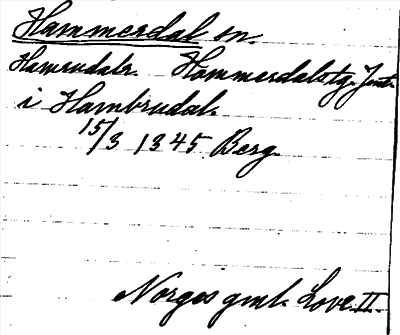 Hammerdal sn.
Hamrudals. Hammerdals tg. Jämtl.
i Hambrudal.
15/3 1345 Berg.
Norges gml. Love II.